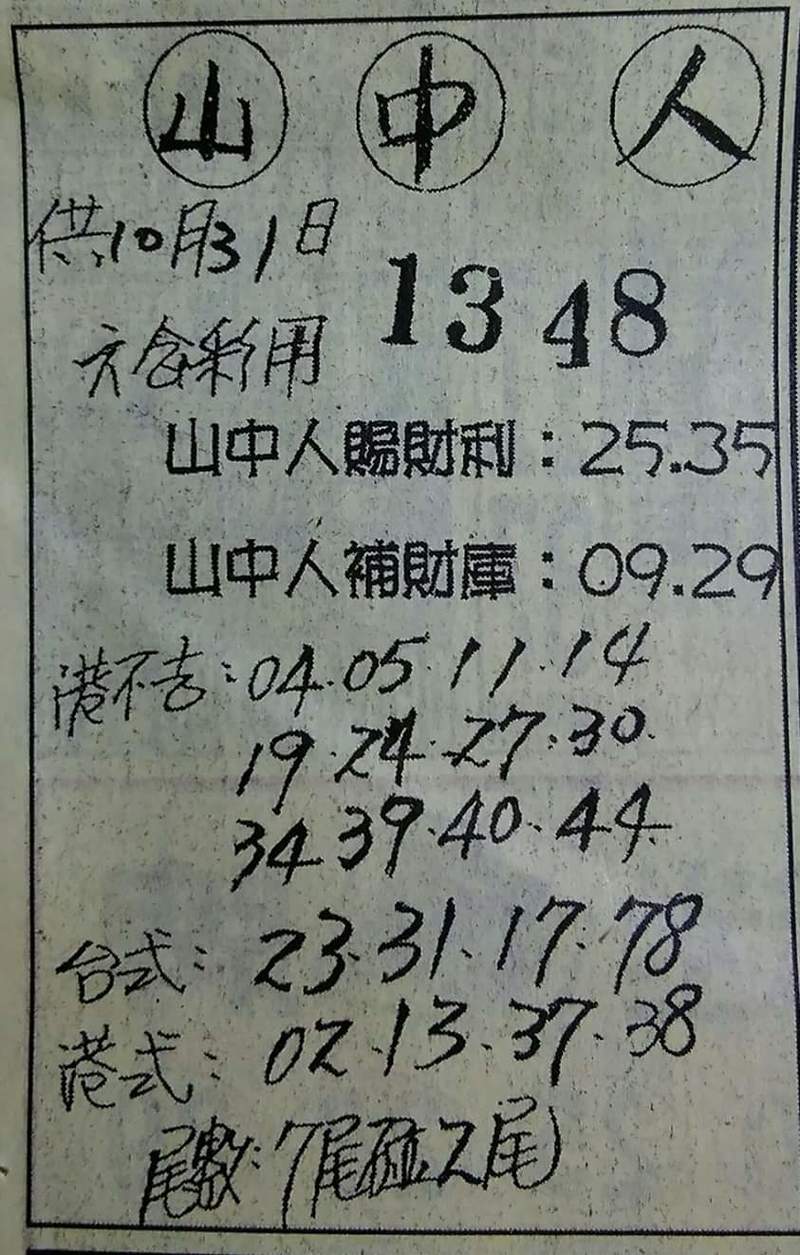 山中人
供10月31日
1348
六合彩用
山中人賜財利：25.35
山中人補財庫：09.29
港不去：04.05.11.14
19.24.27.30.
34 39.40.44
台式：23.31.17.78
港式：02.13.37.38
尾數：7尾碰2尾